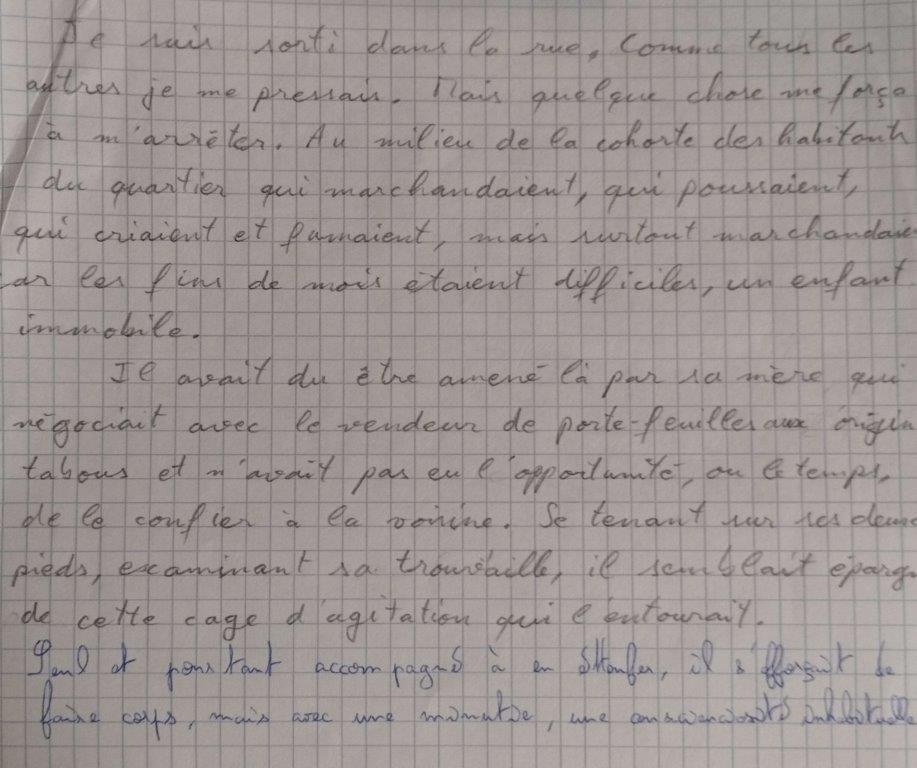 Je suis sorti dans la rue, Comme tous les
autres je me pressais. Mais quelque chose me força
à m'arrêter. Au milieu de la cohorte des habitants
du quartier qui marchandaient, qui poussaient,
qui criaient et fumaient, mais surtout marchandaie
ar les fins de mois étaient difficiles, un enfant
immobile.
Il avait du être amené là par sa mère qui
négociait avec le vendeur de porte-feuilles aux origin
tabous et n'avait pas eu l'opportunité, ou le temps,
de le confier à la voisine. Se tenant sur ses deux
pieds, examinant sa trouvaille, il semblait éparg
de cette cage d'agitation qui l'entourait.
Seul et pourtant accompagné à en étouffer, il s'efforçait de
faire corps, mais avec une minutie, une